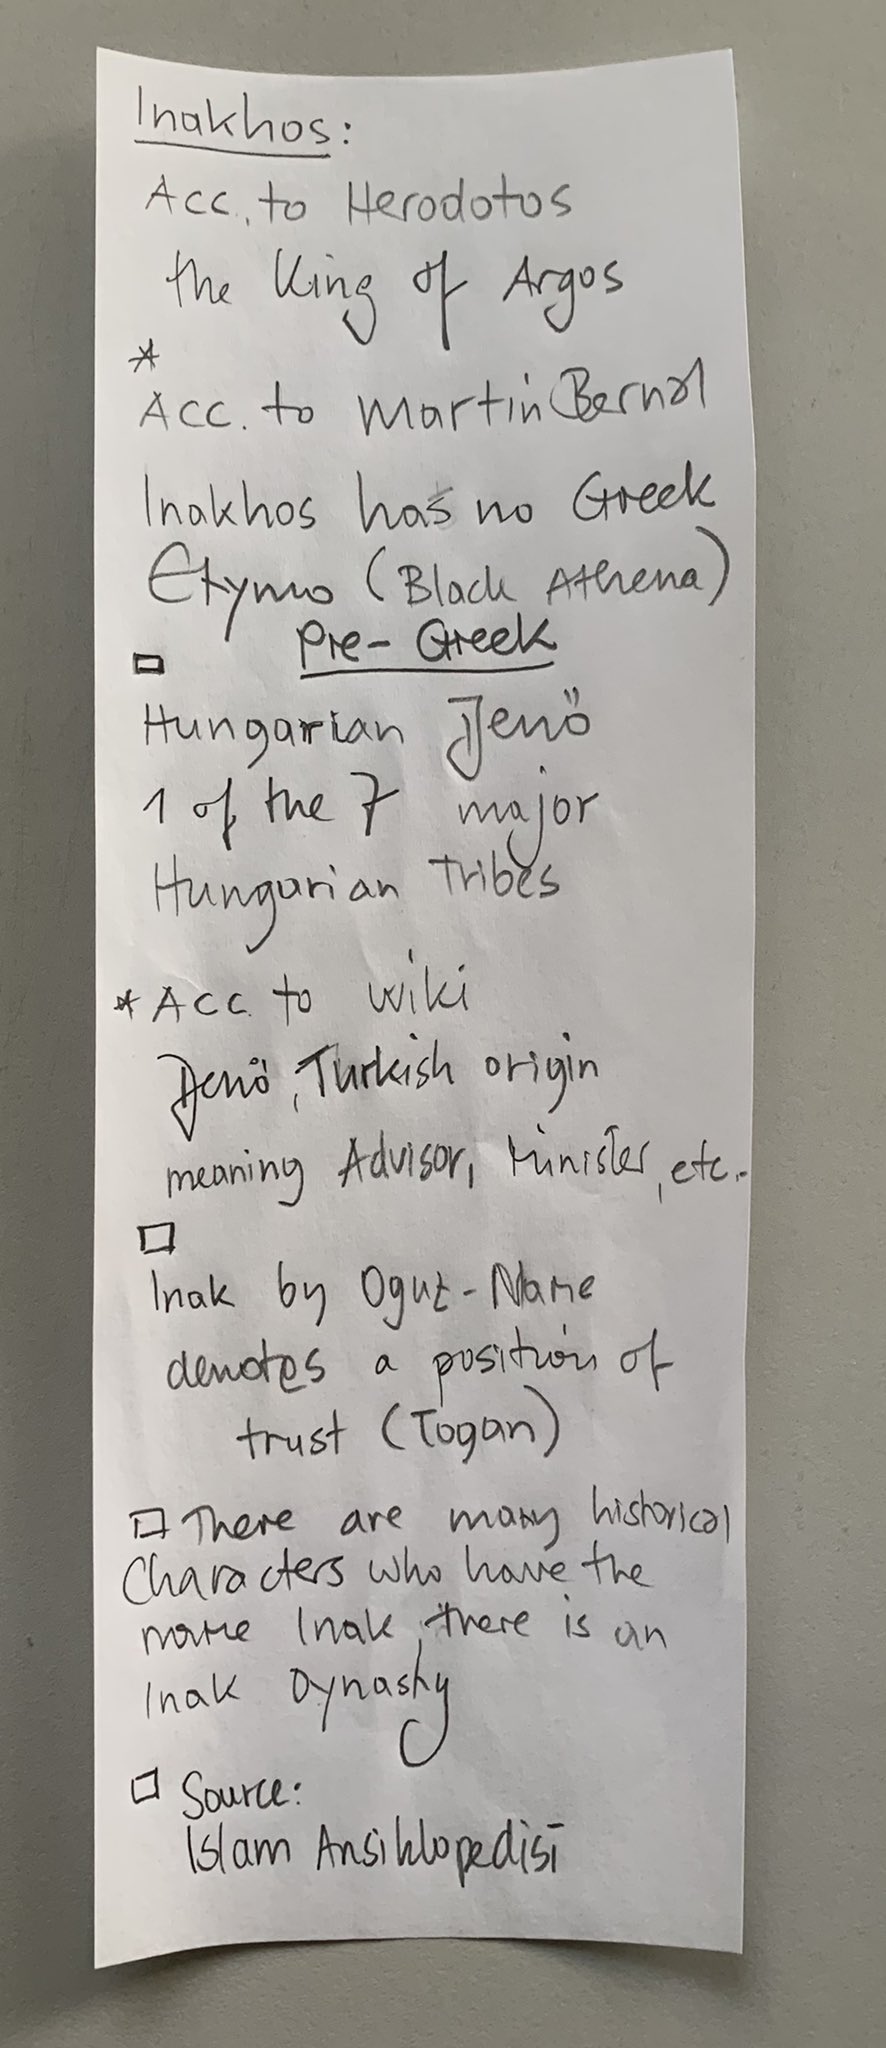 Inakhos:
Acc. to Herodotos
the King of Argos
*
Acc. to Martin Bernal
Inakhos has no Greek
Etymo (Black Athena)
Pre-Greek
Hungarian Jenő
1 of the 7 major
Hungarian Tribes
* Acc. to wiki
Jenő, Turkish origin
meaning Advisor, Minister, etc.
Inak by Oguz-Name
denotes a position of
trust (Togan)
□ There are many historical
Characters who have the
name Inak, there is an
Inak Dynasty
□ Source:
Islam Ansiklopedisi